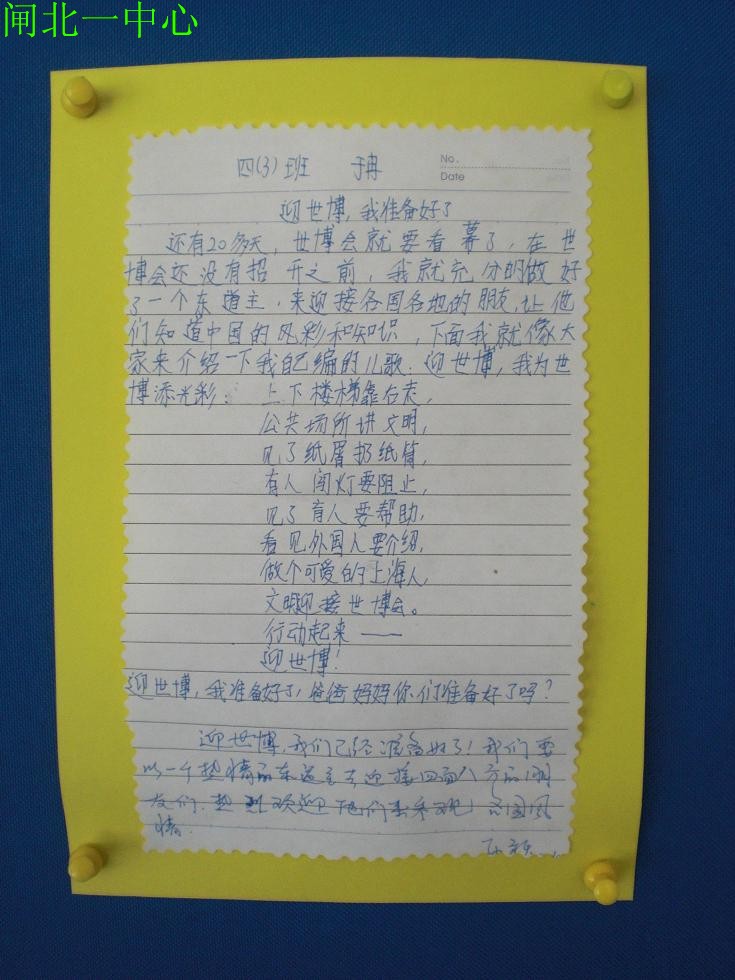 闸北一中心
四(3)班 于冉
No.
Date
迎世博,我准备好了
还有20多天,世博会就要看幕了,在世
博会还没有招开之前,我就充分的做好
了一个东道主,来迎接各国各地的朋友,让他
们知道中国的风彩和知识,下面我就像大
家来介绍一下我自己编的儿歌:迎世博,我为世
博添光彩: 上下楼梯靠右走,
公共场所讲文明,
见了纸屑扔纸筒,
有人闯灯要阻止,
见了盲人要帮助,
看见外国人要介绍,
做个可爱的上海人,
文明迎接世博会。
行动起来——
迎世博!
迎世博,我准备好了,爸爸妈妈你们准备好了吗?
迎世博,我们已经准备好了!我们要
以一个热情的东道主去迎接四面八方的朋
友们,热烈欢迎他们来观 国风
情.